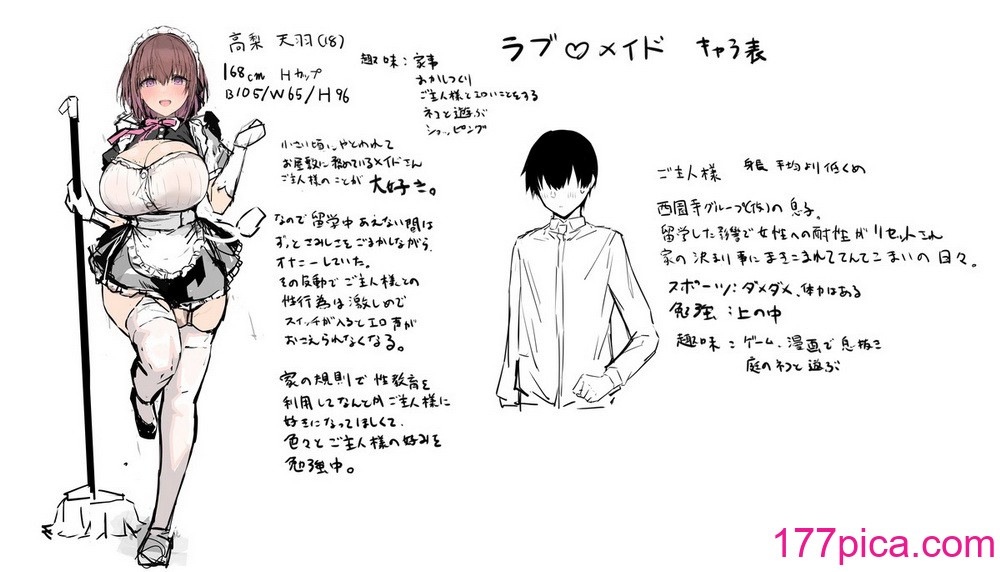 ラブ♡メイド キャラ表
高梨 天羽(18)
168cm Hカップ
B105/W65/H96
趣味:家事
おかしつくり
ご主人様とエロいことをする
ネコと遊ぶ
ショッピング
小さい頃にやとわれて
お屋敷に務めているメイドさん
ご主人様のことが 大好き。
なので留学中あえない間は
ずっとさみしさをごまかしながら
オナニーしていた。
その反動でご主人様との
性行為は激しめで
スイッチが入るとエロ声が
おさえられなくなる。
家の規則で性教育を
利用してなんとかご主人様に
好きになってほしくて、
色々とご主人様の好みを
勉強中。
ご主人様 身長 平均より低くめ
西園寺グループ(仮)の息子。
留学した影響で女性への耐性がリセットされ
家の決まり事にまきこまれててんてこまいの日々。
スポーツ:ダメダメ、体力はある
勉強:上の中
趣味:ゲーム、漫画で息抜き
庭のネコと遊ぶ
177pica.com